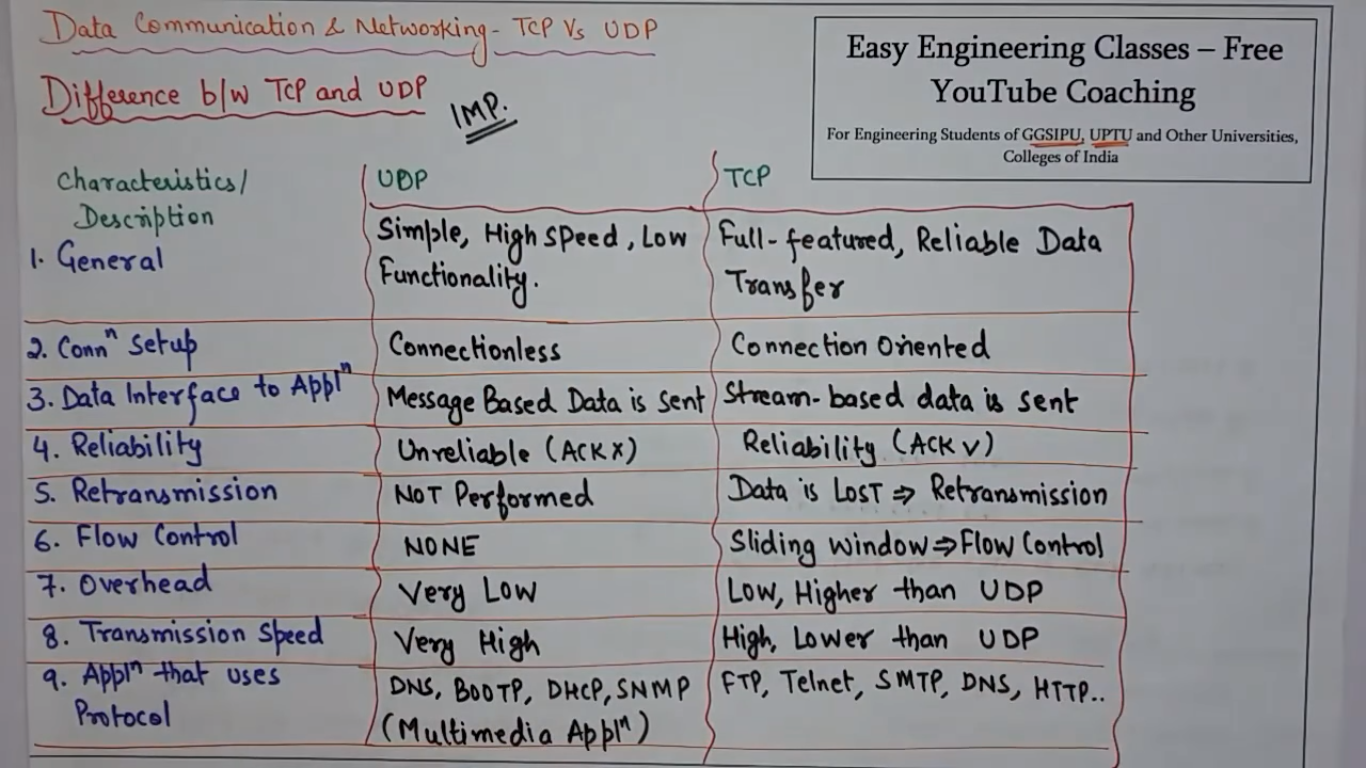 Data Communication & Networking - TCP Vs UDP
Difference b/w TCP and UDP
IMP.
Easy Engineering Classes – Free
YouTube Coaching
For Engineering Students of GGSIPU, UPTU and Other Universities,
Colleges of India
Characteristics/
Description
UDP
TCP
1. General
Simple, High Speed, Low
Functionality.
Full-featured, Reliable Data
Transfer
2. Connⁿ Setup
Connectionless
Connection Oriented
3. Data Interface to Applⁿ
Message Based Data is sent
Stream-based data is sent
4. Reliability
Unreliable (ACK x)
Reliability (ACK ✓)
5. Retransmission
NOT Performed
Data is LOST ⇒ Retransmission
6. Flow Control
NONE
Sliding Window ⇒ Flow Control
7. Overhead
Very Low
Low, Higher than UDP
8. Transmission Speed
Very High
High, Lower than UDP
9. Applⁿ that uses
Protocol
DNS, BOOTP, DHCP, SNMP
(Multimedia Applⁿ)
FTP, Telnet, SMTP, DNS, HTTP..